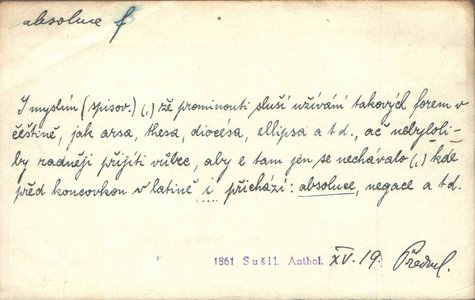 absoluce f
I myslím (spisov.) (,) žě prominouti sluší užívání takových forem v
češtině, jak arsa, thesa, diocésa, ellipsa a t d., ač nebylo li-
by raděěji přijíti vůbec, aby e tam jen se nechávalo (,) kdě
před koncovkou v latině i přichází: absoluce, negace a t d.
1861 Sušil. Anthol. XV. 19. Předml.